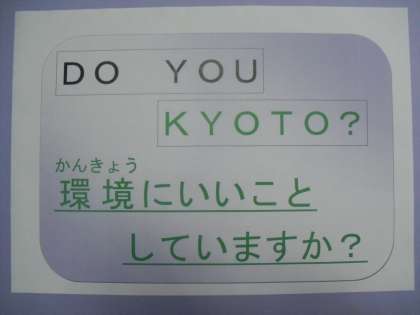 DO YOU
KYOTO?
かんきょう
環境にいいこと
していますか？